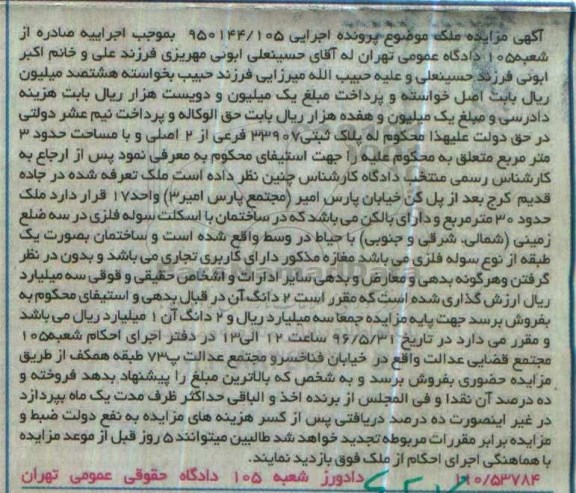 آگهی مزایده ملک موضوع پرونده اجرایی ۹۵۰۱۴۴/۱۰۵ بموجب اجراییه صادره از
شعبه۱۰۵ دادگاه عمومی تهران له آقای حسینعلی ابوئی مهریزی فرزند علی و خانم اکبر
ابوئی فرزند حسینعلی و علیه حبیب الله میرزایی فرزند حبیب بخواسته هشتصد میلیون
ریال بابت اصل خواسته و پرداخت مبلغ یک میلیون و دویست هزار ریال بابت هزینه
دادرسی و مبلغ یک میلیون و هفده هزار ریال بابت حق الوکاله و پرداخت نیم عشر دولتی
در حق دولت علیهذا محکوم له پلاک ثبتی۳۳۹۰۷ فرعی از ۲ اصلی و با مساحت حدود ۳
متر مربع متعلق به محکوم علیه را جهت استیفای محکوم به معرفی نمود پس از ارجاع به
کارشناس رسمی منتخب دادگاه کارشناس چنین نظر داده است ملک تعرفه شده در جاده
قدیم کرج بعد از پل کن خیابان پارس امیر (مجتمع پارس امیر۳) واحد۱۷ قرار دارد ملک
حدود ۳۰ متر مربع و دارای بالکن می باشد که در ساختمان با اسکلت سوله فلزی در سه ضلع
زمینی (شمالی، شرقی و جنوبی) با حیاط در وسط واقع شده است و ساختمان بصورت یک
طبقه از نوع سوله فلزی می باشد مغازه مذکور دارای کاربری تجاری می باشد و بدون در نظر
گرفتن وهرگونه بدهی و معارض و بدهی سایر ادارات و اشخاص حقیقی و قوقی سه میلیارد
ریال ارزش گذاری شده است که مقرر است ۲ دانگ آن در قبال بدهی و استیفای محکوم به
بفروش برسد جهت پایه مزایده جمعا سه میلیارد ریال و ۲ دانگ آن ۱ میلیارد ریال می باشد
و مقرر می دارد در تاریخ ۹۶/۵/۳۱ ساعت ۱۲ الی۱۳ در دفتر اجرای احکام شعبه۱۰۵
مجتمع قضایی عدالت واقع در خیابان فناخسرو مجتمع عدالت پ۷۳ طبقه همکف از طریق
مزایده حضوری بفروش برسد و به شخص که بالاترین مبلغ را پیشنهاد بدهد فروخته و
ده درصد آن نقدا و فی المجلس از برنده اخذ و الباقی حداکثر ظرف مدت یک ماه بپردازد
در غیر اینصورت ده درصد دریافتی پس از کسر هزینه های مزایده به نفع دولت ضبط و
مزایده برابر مقررات مربوطه تجدید خواهد شد طالبین میتوانند ۵ روز قبل از موعد مزایده
با هماهنگی اجرای احکام از ملک فوق بازدید نمایند.
۱۱۰/۵۳۷۸۴ دادورز شعبه ۱۰۵ دادگاه حقوقی عمومی تهران